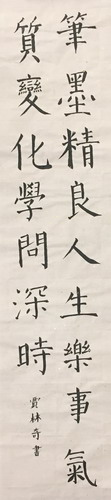 筆墨精良人生樂事氣
質變化學問深時
賈林奇書